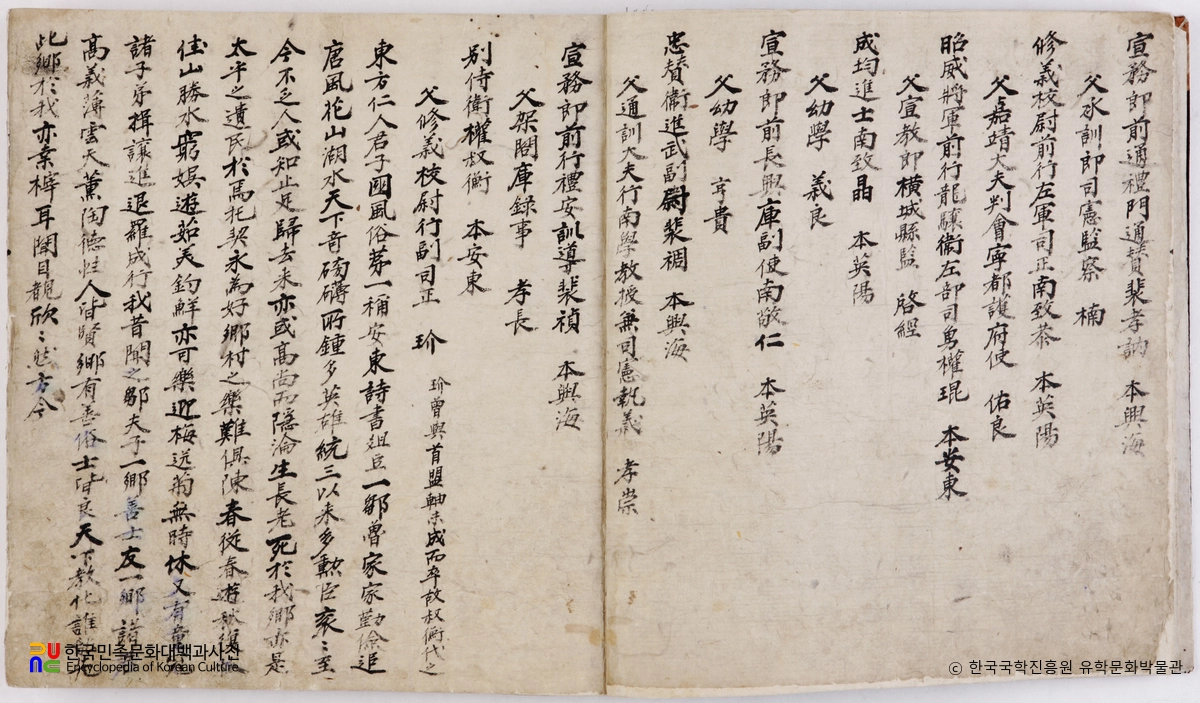 宣務郎前通禮門通贊裴孝訥 本興海
父承訓郎司憲監察 楠
修義校尉前行左軍司正南致恭 本英陽
父嘉靖大夫判會寧都護府使 佑良
昭威將軍前行龍驤衛左部司勇權琨 本安東
父宣教郎橫城縣監 啓經
成均進士南致晶 本英陽
父幼學 義良
宣務郎前長興庫副使南敬仁 本英陽
父幼學 亨貴
忠贊衛進武副尉裴裯 本興海
父通訓大夫行南學教授兼司憲執義 孝崇
宣務郎前行禮安訓導裴禎 本興海
父架閣庫錄事 孝長
別侍衛權叔衡 本安東
父修義校尉行副司正 玠 玠曾與首盟軸未成而卒故叔衡代之
東方仁人君子國風俗第一稱安東詩書俎豆一鄒魯家家勤儉追
唐風花山湖水天下奇磅礴所鍾多英雄統三以來多勳臣袞〻至
今不乏人或知止足歸去來亦或高尚而隱淪生長老死於我鄉亦是
太平之遺民於焉托契永為好鄉村之樂難俱陳春從春遊秋復
佳山勝水窮娛遊茹美釣鮮亦可樂迎梅送菊無時休又有
諸子弟揖讓進退羅成行我昔聞之鄒夫子一鄉善士友一鄉諸
高義薄雲天薰陶德性人皆賢鄉有善俗士皆良天下教化誰
此鄉於我亦桑梓耳聞目觀欣〻然方今
한국민족문화대백과사전
Encyclopedia of Korean Culture
© 한국국학진흥원 유학문화박물관..